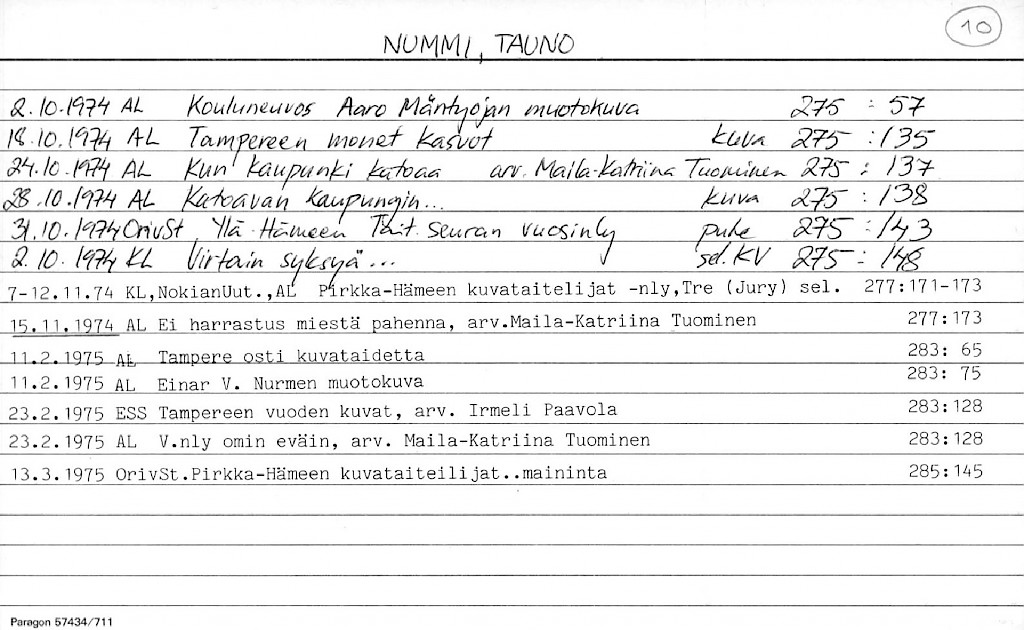 10
NUMMI, TAUNO
2.10.1974 AL Kouluneuvos Aaro Mäntyojan muotokuva 275 : 57
18.10.1974 AL Tampereen monet kasvot kuva 275 : 135
24.10.1974 AL Kun kaupunki katoaa arv. Maila-Katriina Tuominen 275 : 137
28.10.1974 AL Katoavan kaupungin... kuva 275 : 138
31.10.1974 OrivSt Ylä-Hämeen Tait.seuran vuosinly puhe 275 : 143
2.10.1974 KL Virtain syksyä... sel.KV 275 : 148
7-12.11.74 KL,NokianUut.,AL Pirkka-Hämeen kuvataitelijat -nly,Tre (Jury) sel. 277:171-173
15.11.1974 AL Ei harrastus miestä pahenna, arv.Maila-Katriina Tuominen 277:173
11.2.1975 AL Tampere osti kuvataidetta 283: 65
11.2.1975 AL Einar V. Nurmen muotokuva 283: 75
23.2.1975 ESS Tampereen vuoden kuvat, arv. Irmeli Paavola 283:128
23.2.1975 AL V.nly omin eväin, arv. Maila-Katriina Tuominen 283:128
13.3.1975 OrivSt.Pirkka-Hämeen kuvataiteilijat..maininta 285:145
Paragon 57434/711